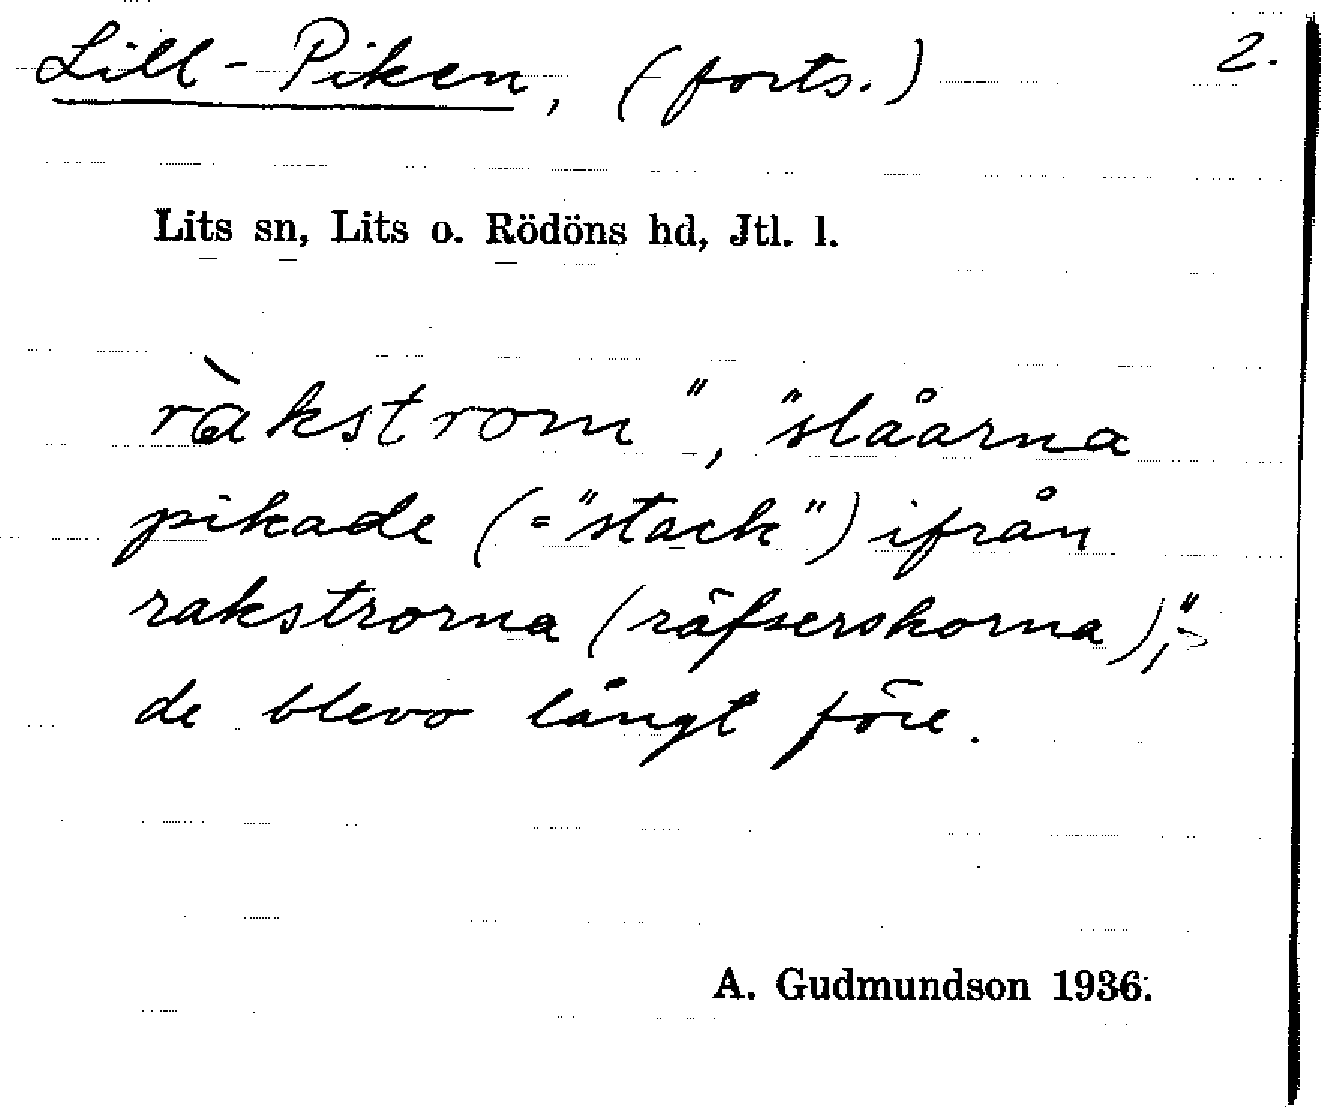 Lill-Piken, (forts.) 2.
Lits sn, Lits o. Rödöns hd, Jtl. l.
ràkstrom", "slåarna
pikade (="stack") ifrån
rakstrorna (räfserskorna),"
de blevo långt före.
A. Gudmundson 1936.